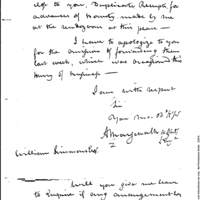 to you, Duplicate Receipts for
advances of Bounty made by me
at the rendezvous at this place —
I have to apologize to you
for the omission of forwarding them
last week, which was occasioned the
hurry of business —
I am with respect
Sir
Your mo. ob. St
William Simmons Esq
Will you give me leave
to enquire if any arrangement by